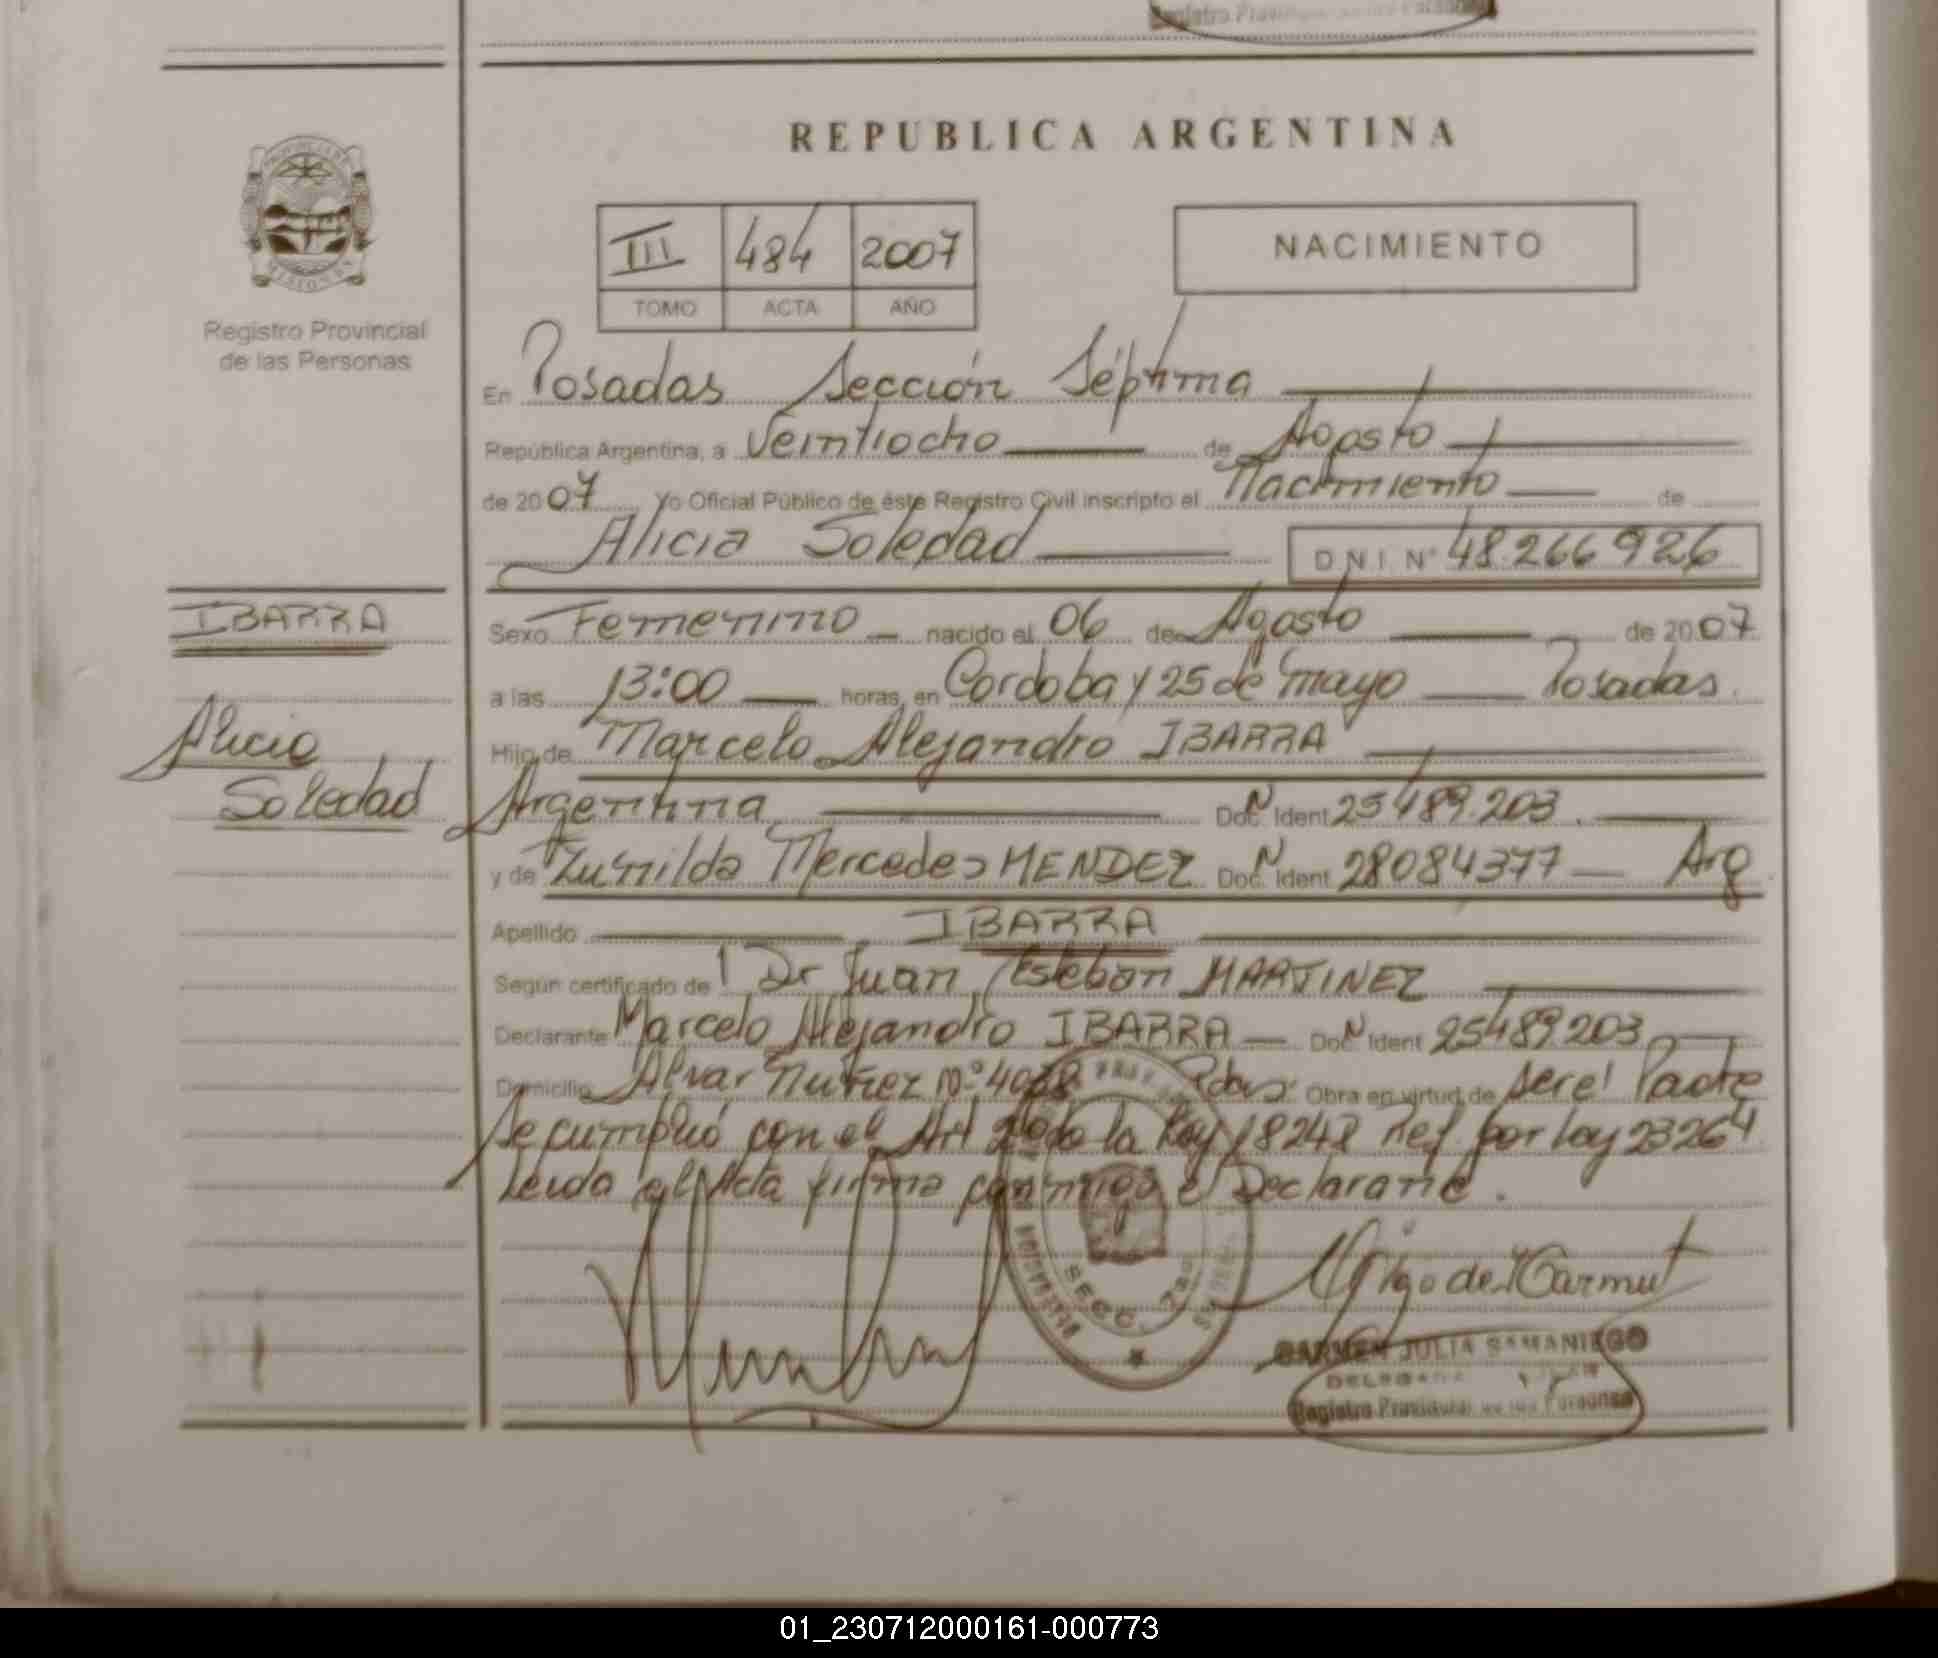 REPUBLICA ARGENTINA
III 484 2007
TOMO ACTA AÑO
NACIMIENTO
Registro Provincial
de las Personas
En Posadas Sección Séptima
República Argentina, a Veintiocho de Agosto
de 2007 Yo Oficial Público de éste Registro Civil inscripto el Nacimiento de
Alicia Soledad D N I Nº 48.266.926
IBARRA
Alicia
Soledad
Sexo Femenino nacido el 06 de Agosto de 2007
a las 13:00 horas, en Cordoba y 25 de Mayo Posadas.
Hijo de Marcelo Alejandro IBARRA
Argentina Doc. Nº Ident 25.489.203
y de Zunilda Mercedes MENDEZ Doc. Nº Ident 28084377 Arg
Apellido IBARRA
Según certificado de Dr Juan Esteban MARTINEZ
Declarante Marcelo Alejandro IBARRA Doc. Nº Ident 25489.203
Domicilio Alvar Nuñez Nº Pdas. Obra en virtud de ser el Padre
Se cumplió con el Art de la Ley 18248 Ref. por Ley 23264
Leida el Acta firma conmigo el Declarante.
SECC. 7a
CARMEN JULIA SAMANIEGO
DELEGADA
Registro Provincial de las Personas
01_230712000161-000773